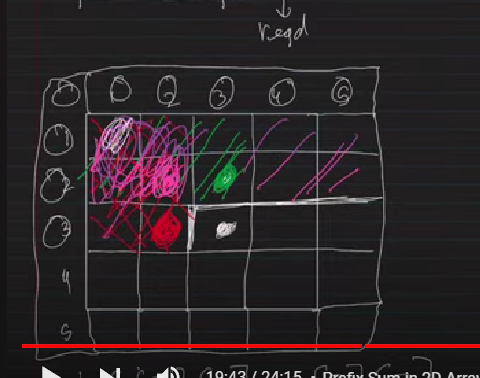 reqd
0 1 2 3 4 5
1
2
3
4
5
19:43 / 24:15 • Prefix Sum in 2D Array